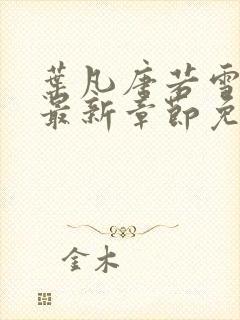 葉凡唐若雪
最新章節免
金木